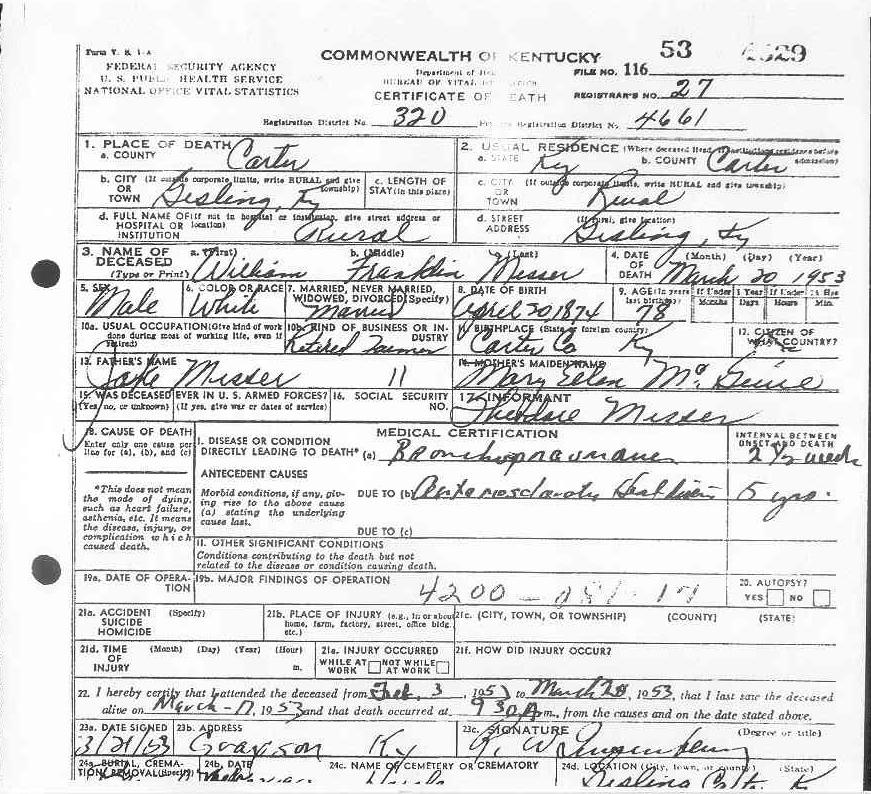 Form V. S. 1-A
COMMONWEALTH OF KENTUCKY 53
FEDERAL SECURITY AGENCY
U. S. PUBLIC HEALTH SERVICE
NATIONAL OFFICE VITAL STATISTICS
FILE NO. 116
BUREAU OF VITAL
CERTIFICATE OF DEATH
REGISTRAR'S NO. 27
Registration District No. 320
Registration District No. 4661
1. PLACE OF DEATH
a. COUNTY Carter
2. USUAL RESIDENCE (Where deceased lived. If institution: residence before admission)
a. STATE Ky b. COUNTY Carter
b. CITY (If outside corporate limits, write RURAL and give township)
OR
TOWN Gesling, Ky
c. LENGTH OF STAY (in this place)
c. CITY (If outside corporate limits, write RURAL and give township)
OR
TOWN Rural
d. FULL NAME OF (If not in hospital or institution, give street address or location)
HOSPITAL OR
INSTITUTION Rural
d. STREET (If rural, give location)
ADDRESS Gesling, Ky
3. NAME OF DECEASED (Type or Print)
a. (First) William b. (Middle) Franklin c. (Last) Messer
4. DATE OF DEATH (Month) (Day) (Year)
March 20 1953
5. SEX Male
6. COLOR OR RACE White
7. MARRIED, NEVER MARRIED, WIDOWED, DIVORCED (Specify)
8. DATE OF BIRTH April 20 1874
9. AGE (In years last birthday) 78
If Under 1 Year Months Days
If Under 24 Hrs Hours Min.
10a. USUAL OCCUPATION (Give kind of work done during most of working life, even if retired)
10b. KIND OF BUSINESS OR INDUSTRY
Retired Farmer
11. BIRTHPLACE (State or foreign country)
Carter Co Ky
12. CITIZEN OF WHAT COUNTRY?
13. FATHER'S NAME
Jake Messer 11
14. MOTHER'S MAIDEN NAME
Mary Ellen
15. WAS DECEASED EVER IN U. S. ARMED FORCES?
(Yes, no, or unknown) (If yes, give war or dates of service)
16. SOCIAL SECURITY NO.
17. INFORMANT
Theodore Messer
18. CAUSE OF DEATH
Enter only one cause per line for (a), (b), and (c)
MEDICAL CERTIFICATION
INTERVAL BETWEEN ONSET AND DEATH
I. DISEASE OR CONDITION
DIRECTLY LEADING TO DEATH* (a) Bronchopneumonia 2 1/2 week
*This does not mean
the mode of dying,
such as heart failure,
asthenia, etc. It means
the disease, injury, or
complication which
caused death.
ANTECEDENT CAUSES
Morbid conditions, if any, giv-
ing rise to the above cause
(a) stating the underlying
cause last.
DUE TO (b) Heart 5 yrs.
DUE TO (c)
II. OTHER SIGNIFICANT CONDITIONS
Conditions contributing to the death but not
related to the disease or condition causing death.
19a. DATE OF OPERA-
TION
19b. MAJOR FINDINGS OF OPERATION
4200
20. AUTOPSY?
YES NO
21a. ACCIDENT (Specify)
SUICIDE
HOMICIDE
21b. PLACE OF INJURY (e.g., in or about
home, farm, factory, street, office bldg.
etc.)
21c. (CITY, TOWN, OR TOWNSHIP) (COUNTY) (STATE)
21d. TIME (Month) (Day) (Year) (Hour)
OF
INJURY m.
21e. INJURY OCCURRED
WHILE AT WORK NOT WHILE AT WORK
21f. HOW DID INJURY OCCUR?
22. I hereby certify that I attended the deceased from Feb. 3, 1953 to March 20, 1953, that I last saw the deceased
alive on March-17, 1953 and that death occurred at 930 A m., from the causes and on the date stated above.
23a. DATE SIGNED 3/21/53
23b. ADDRESS Grayson Ky
23c. SIGNATURE (Degree or title)
24a. BURIAL, CREMA-
TION, REMOVAL (Specify)
24b. DATE
24c. NAME OF CEMETERY OR CREMATORY
24d. LOCATION (City, town, or county) (State)
Gesling